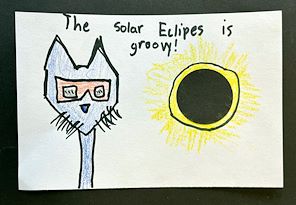 The solar Eclipes is
groovy!